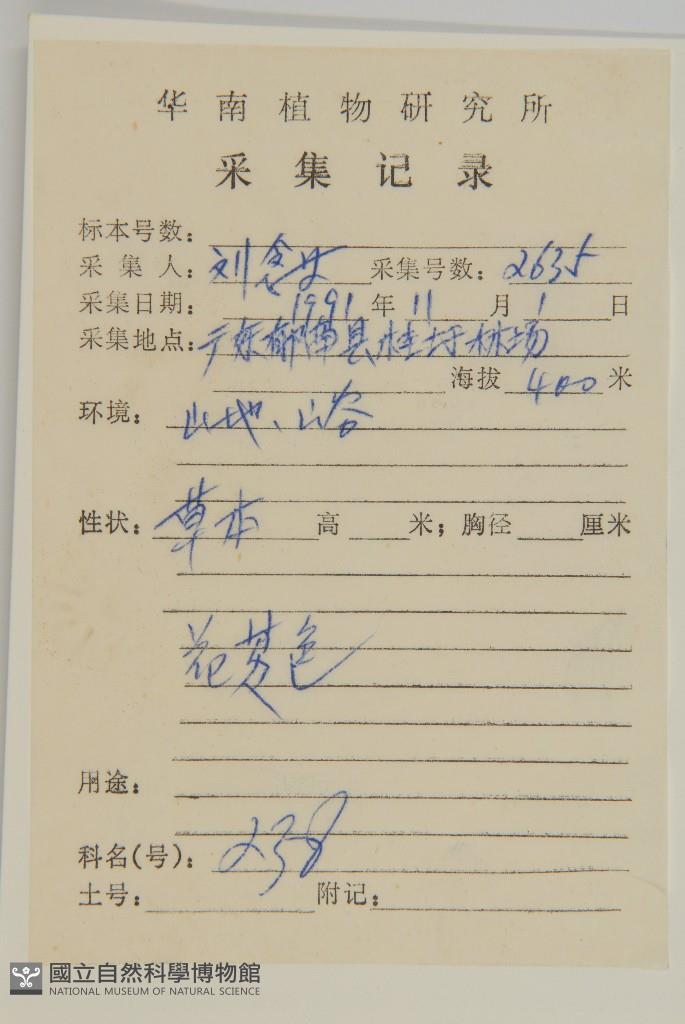 华南植物研究所
采集记录
标本号数：
采集人：刘念 采集号数：2635
采集日期：1991年11月1日
采集地点：广东郁南县桂圩林场
海拔 400 米
环境：山地、山谷
性状：草本 高 米；胸径 厘米
花黄色
用途：
科名(号)：238
土号： 附记：
國立自然科學博物館
NATIONAL MUSEUM OF NATURAL SCIENCE